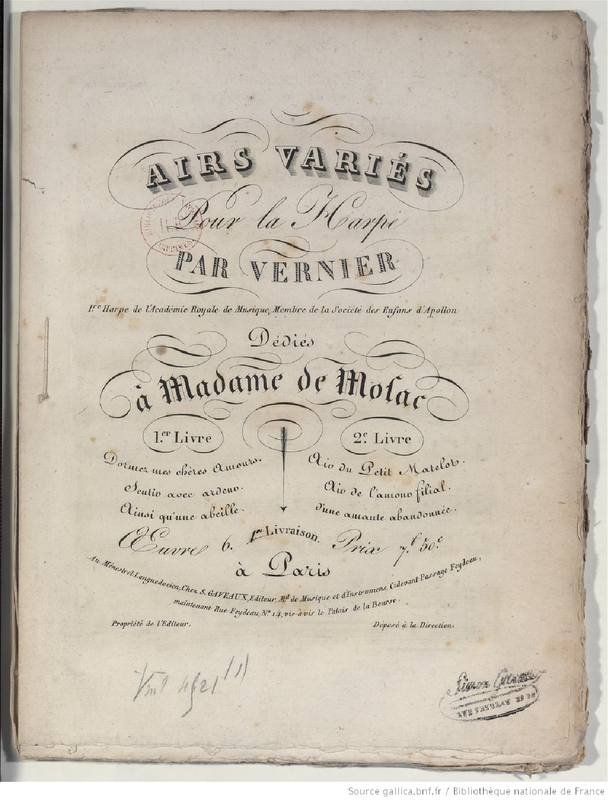 AIRS VARIÉS
Pour la Harpe
PAR VERNIER
1.re Harpe de l'Académie Royale de Musique, Membre de la Société des Enfans d'Apollon
Dédiés
à Madame de Mosac
1.er Livre
Dormez mes chères Amours.
Sentir avec ardeur.
Ainsi qu'une abeille.
2.e Livre
Air du Petit Matelot.
Air de l'amour filial.
d'une amante abandonnée.
Œuvre 6. 1.re Livraison. Prix 7.f 50.c
à Paris
Au Ménestrel Languedocien, Chez S. GAVEAUX, Editeur, M.d de Musique et d'Instrumens, Cidevant Passage Feydeau,
maintenant Rue Feydeau, N.o 14, vis-à-vis le Palais de la Bourse.
Propriété de l'Editeur.
Déposé à la Direction.
Vm9 4521 (1)
Simon Gaveaux
Source gallica.bnf.fr / Bibliothèque nationale de France